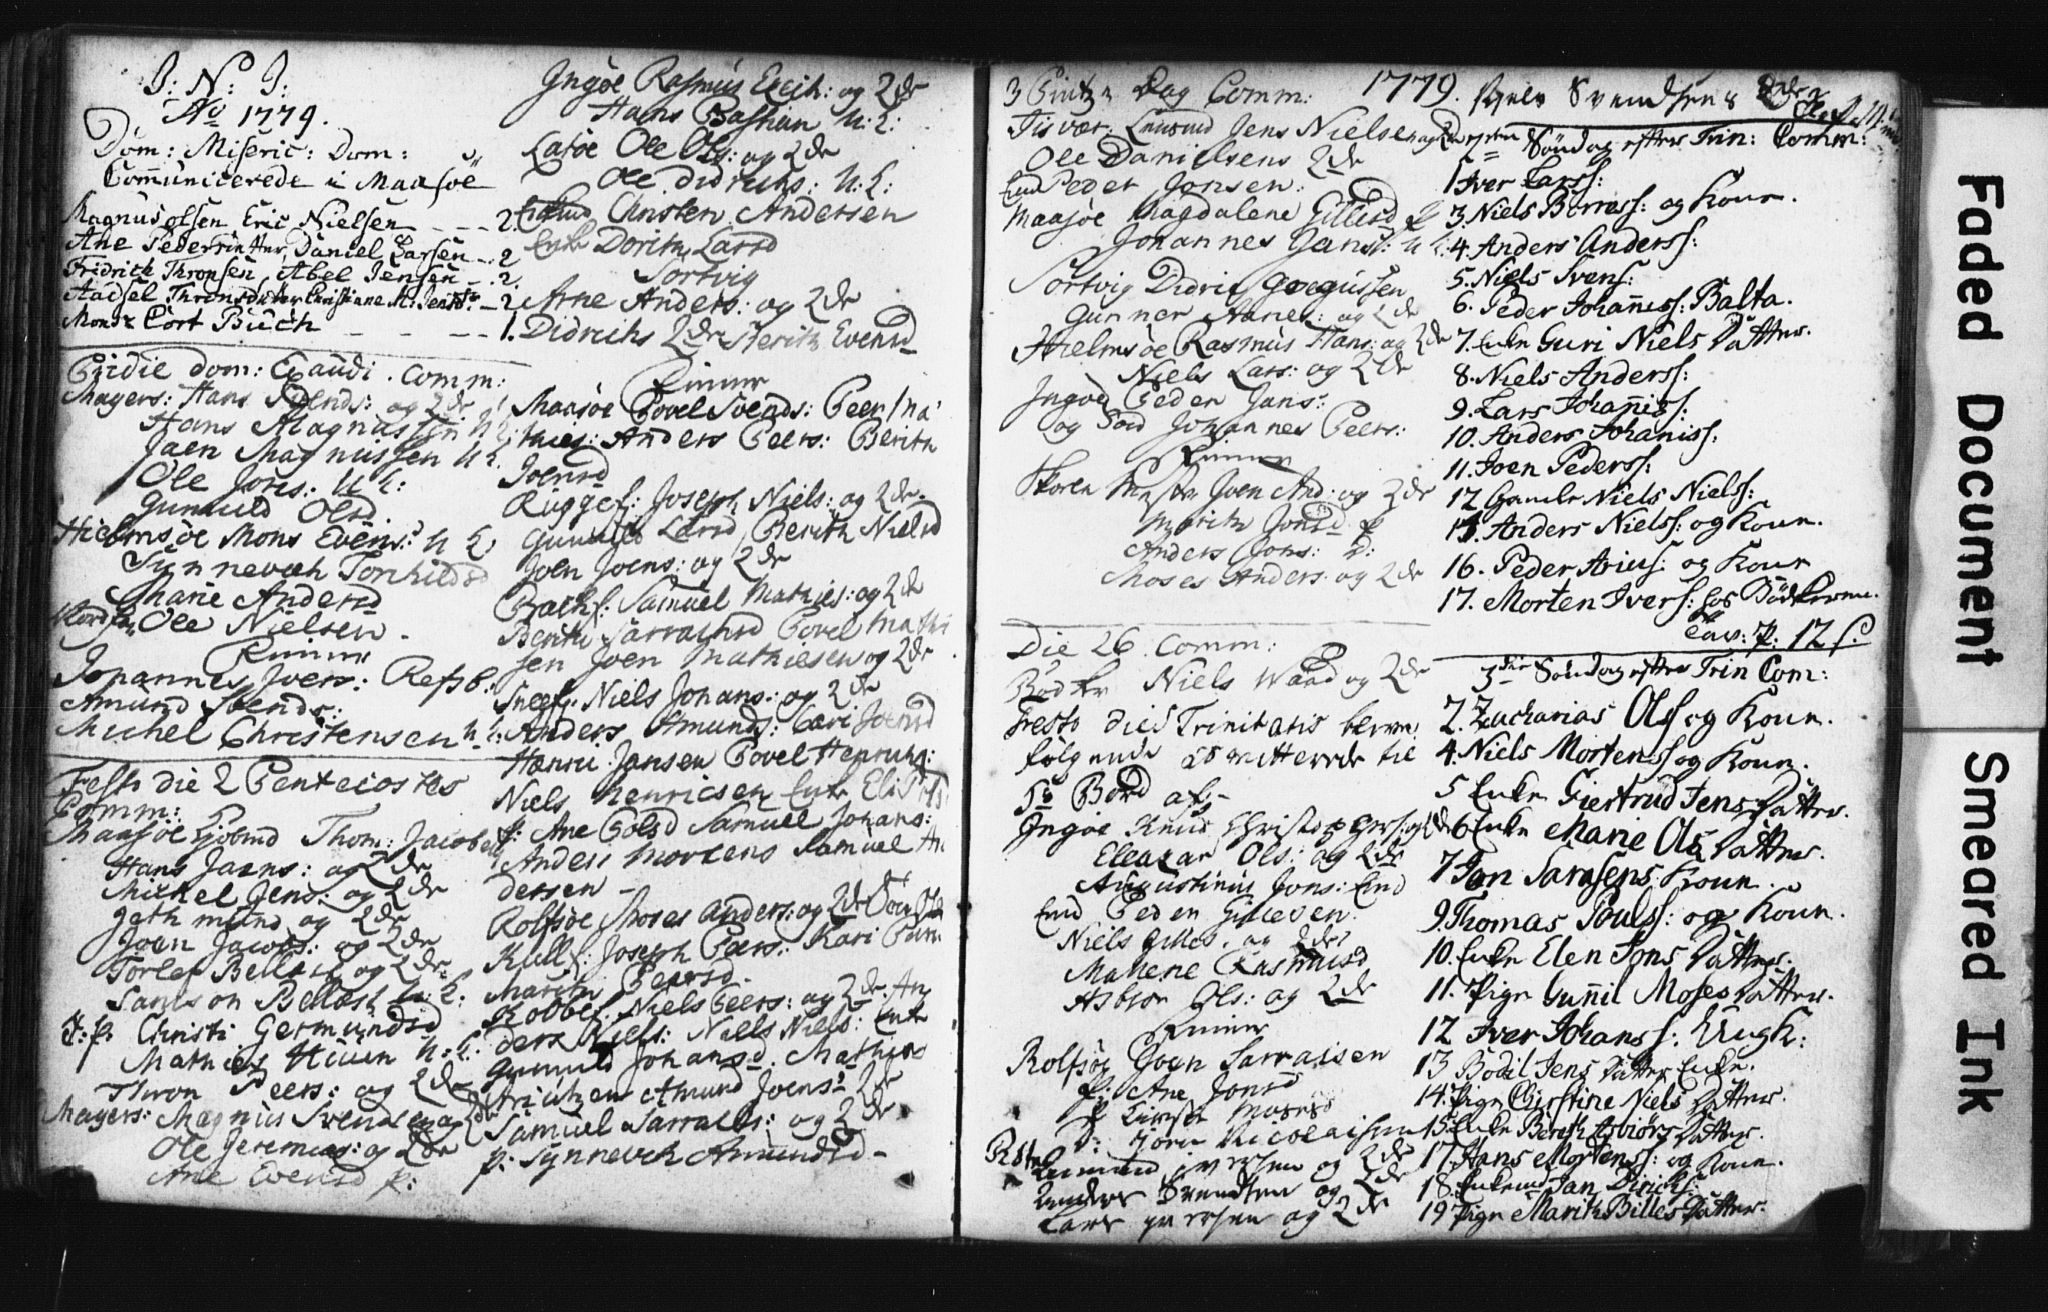 J: N: J:
Ao 1779.
Dom: Miseric: Dom:
Comunicerede i Maasöe
Magnus olsen Eric Nielsen - - - 2.
Ane Pedersdatter, Daniel Larsen - - 2
Fridrich Thronsen, Abel Jensen - 2.
Axsel Thronsdatter Christiane M. - 2
Mons: Cort Buch - - - 1.
Pridie dom: Exaudi. comm:
Magers: Hans Svends: og 2de
Hans Magnussen U L:
Jaen Magnussen U L.
Ole Jons: U L:
Gunnild Olsd
Hielmsöe Mons Evens: U L
Synnevæh Torkildsd
Marie Andersd
Ole Nielsen.
Finner
Johannes Joens: Refsb:
Amund Svends:
Michel Christensen U L:
Festo die 2 Pentecostes
Comm:
Maasöe Thom: Jacobs
Hans Jaens: og 2de
Mickel Jens: og 2de
og 2de
Joen Jacobs: og 2de
Torler Bellach og 2de
Samson U: L:
P: p. Christi Germundsd
Mathies U: L:
Thron Peers: og 2de
Magers: Magnus Svendsen og 2de
Ole Jeremias: og 2de
Ane Evensd p:
Ingöe Rasmus Erich: og 2de
Hans Bastian U: L:
Latöe Ole Ols: og 2de
Ole Didrichs: U: L:
Christen Andersen
Enke Dorith Larsd
Sortvig
Arne Anders: og 2de
Didrichs 2de Berith Evensd
Finner
Maasöe Povel Svends: Peer Ma
thies: Anders Peers: Berith
Joensd
Ryggef: Joseph Niels: og 2de
Gunnild Larsd Berith Nielsd
Joen Joens: og 2de
Bakf: Samuel Mathies: og 2de
Berith Sarrachsd Povel Mathi
sen Joen Mathiesen og 2de
Sneff: Niels Johans: og 2de
Anders Amunds: Cari Joensd
Henric Jansen Povel Henrichs:
Niels Henricsen Enke
p: Ane Polsd Samuel Johans:
Anders Mortens Samuel An
dersen -
Rolfsöe Moses Anders: og 2de
Kullf: Joseph Peers: Kari
Marith Peersd.
Kobbef. Niels Peers: og 2de An
ders Niels: Niels Niels: Enke
Gunnild Johansd. Mathias
Amund Joens: 2de
Samuel Sarrachs: og 2de
p: Synnevch Amundsd -
3 Pintz: Dag Comm: 1779.
Jens Nielsen og 2de
Ole Danielsens 2de
Peder Jonsen:
Maasöe Magdalene Gillesd p
Johannes Jans: U L:
Sortvig Didric Gregussen
Gunner og 2de
Hielmsöe Rasmus Hans: og 2de
Niels Lars: og 2de
Ingöe Peder Jans:
og Johannes Peers:
Finner
Joen And: og 2de
Marith Jonsd p
Anders Jons: D:
Moses Anders: og 2de
Die 26 Comm:
Bödker Niels Waad og 2de
Festo diei Trinitatis
fölgende til
Bord af -
Ingöe Knud Christophers: og 2de
Eleazar Ols: og 2de
Augustinus Jons:
Peder Gillesen.
Niels Gilles. og 2de
Malene Rasmusd
Asbiör Ols: og 2de
Finner
Rolfsöe Joen Sarrasen
p: Ane Jonsd
p Mosesd
D: Nicolaisen
Amund Iversen og 2de
Anders Svendsen og 2de
Lars Iversen og 2de
Svendsens 2de
Söndag efter Trin: Comm:
1 Iver Larss:
3. Niels Börress: og Kone.
4. Anders Anderss:
5. Niels Ivers:
6. Peder Johaniss: Balta.
7. Enke Guri Niels Datter.
8. Niels Anderss:
9. Lars Johaniss:
10. Anders Johaniss:
11. Joen Pederss:
12 Gamle Niels Nielss:
15. Anders Nielss: og Kone.
16. Peder Arius: og Kone
17. Morten Ivers: hos Bödkeren.
12 s.
3die Söndag efter Trin Com:
2. Zacharias Ols og Kone.
4. Niels Mortenss og Kone.
5 Enke Giertrud Jens Datter.
6 Enke Marie Ols Datter.
7 Jon Sarasens Kone.
9. Thomas Poulss: og Kone.
10. Enke Elen Jons Datter.
11. Pige Gunil Moses Datter.
12 Iver Johanss: UngK:
13 Bodil Jens Datter Enke.
14. Pige Christine Niels Datter.
15. Enke Berith Asbiörs Datter.
17. Hans Mortenss: og Kone.
18. Enkem Jan Diricks:
19 Pige Marith Billes Datter.
Faded Document
Smeared Ink